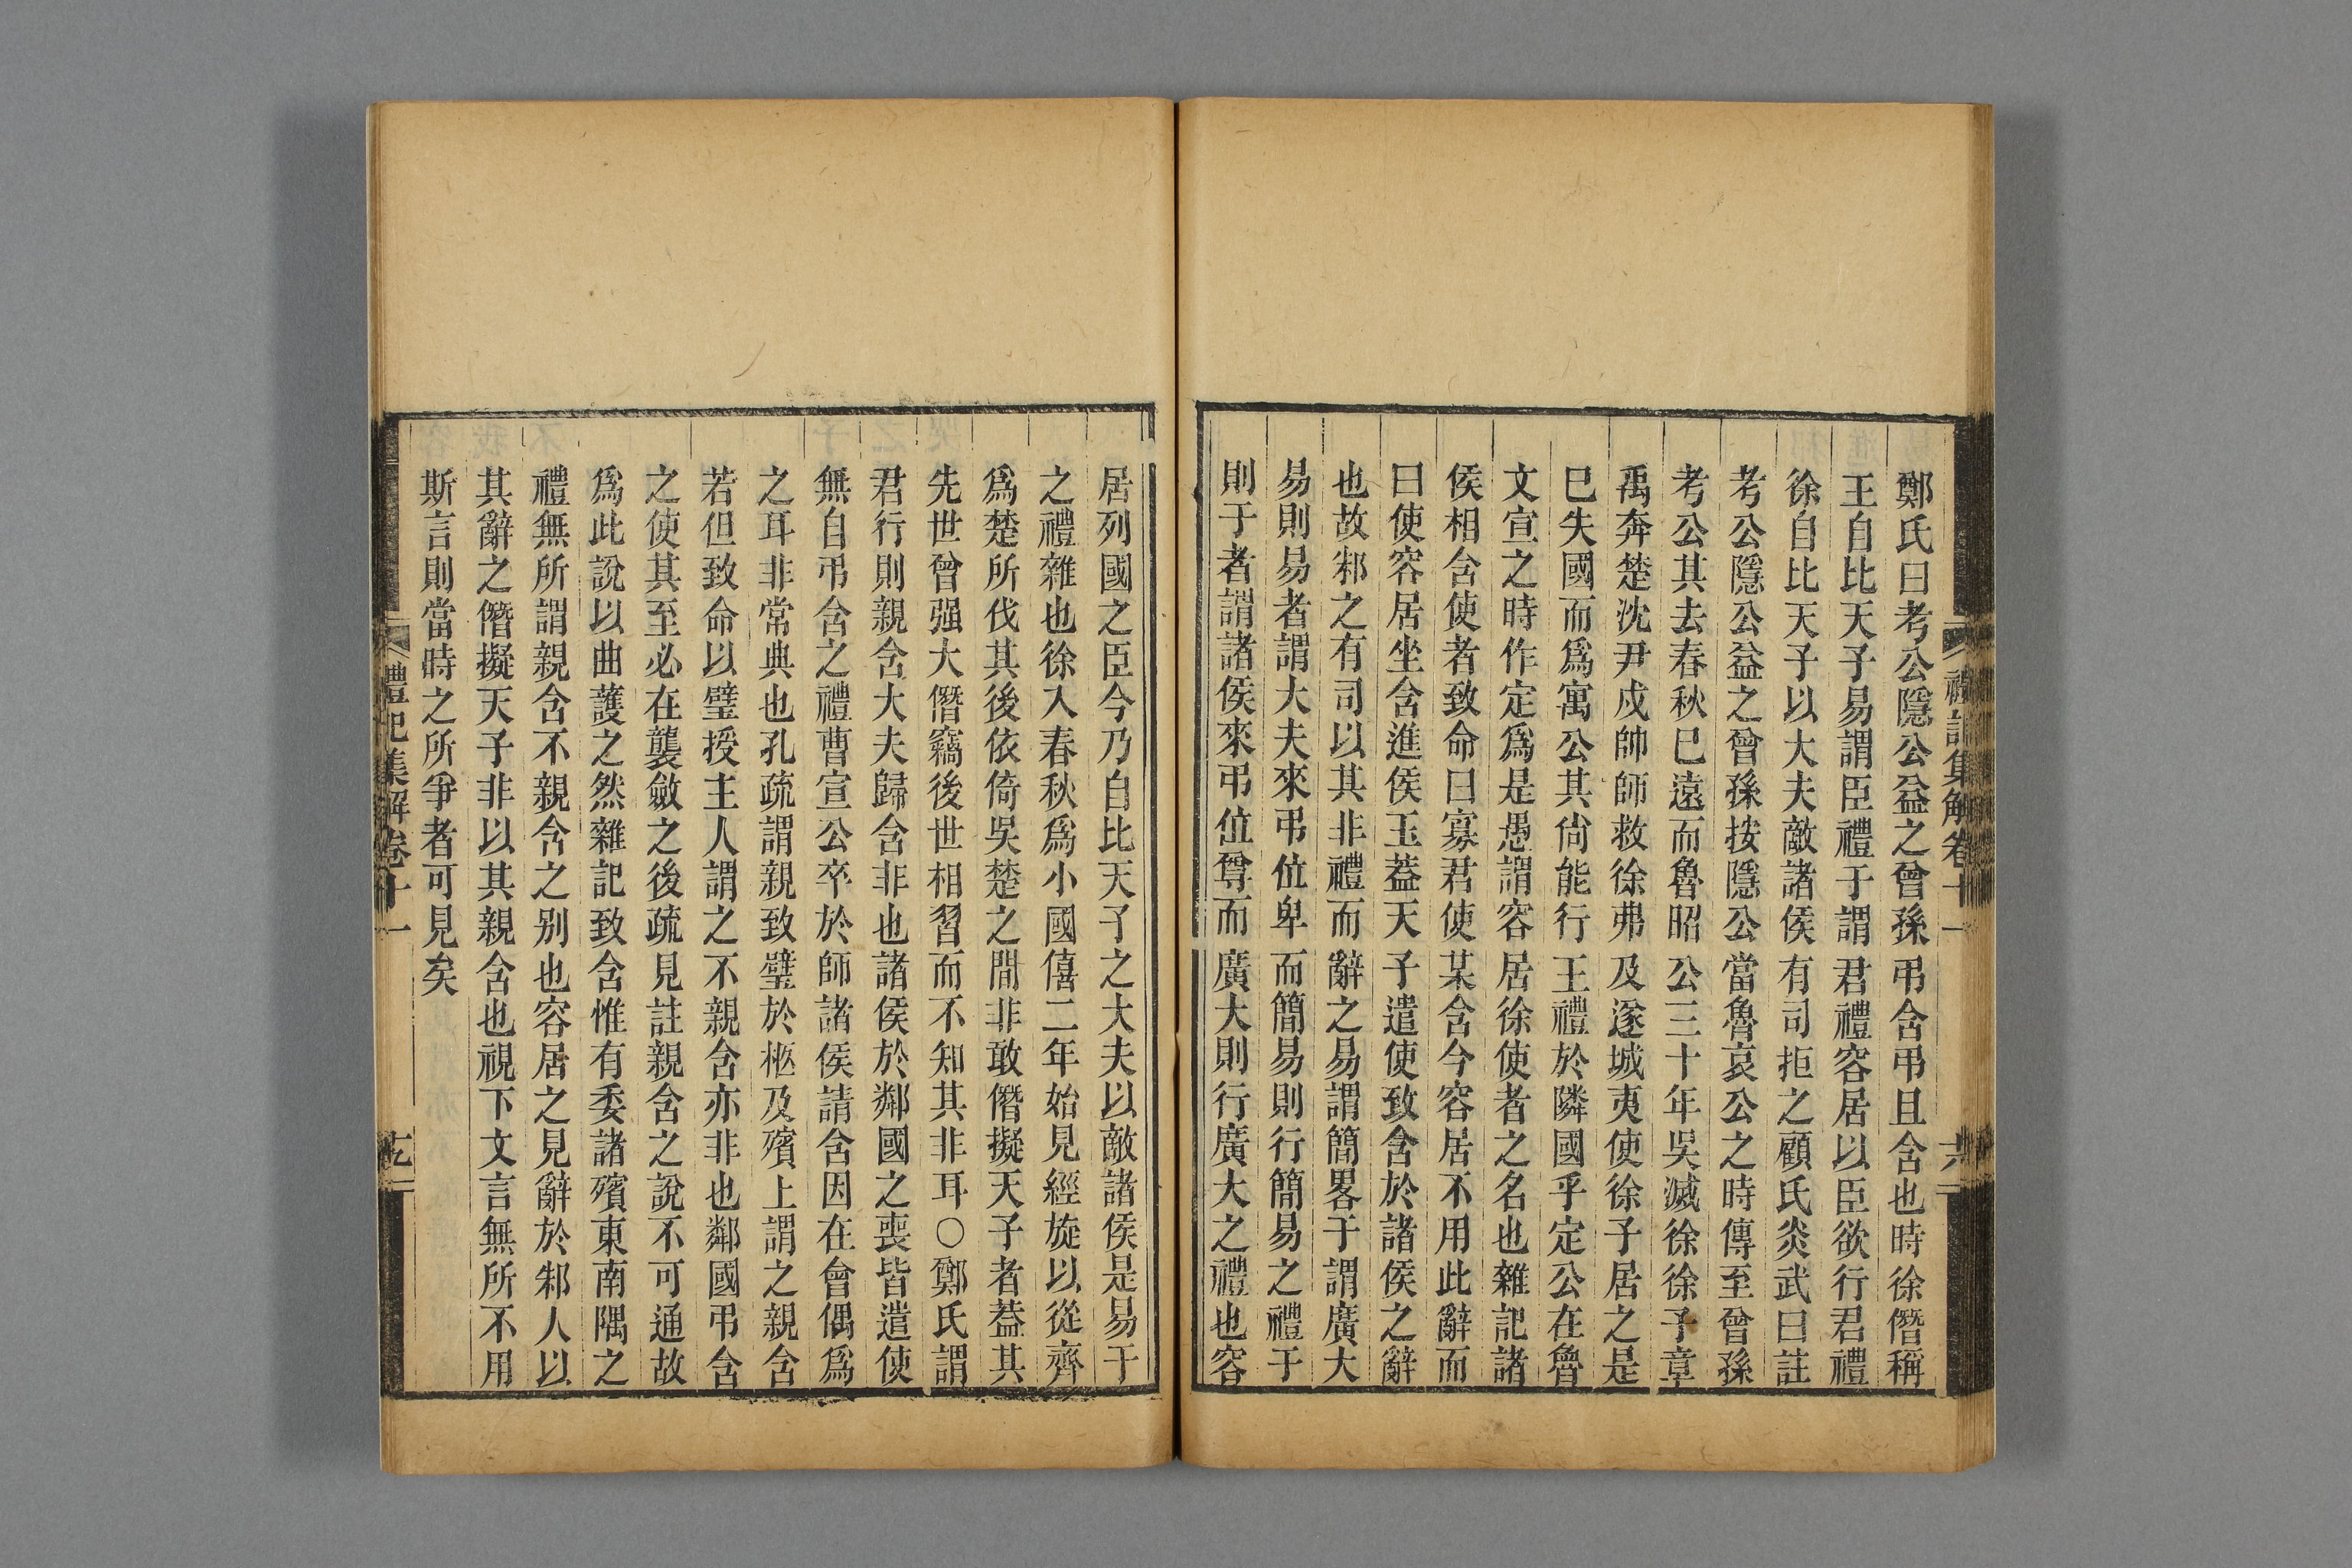 鄭氏曰考公隱公益之曾孫弔含弔且含也時徐僭稱
王自比天子易謂臣禮于謂君禮容居以臣欲行君禮
徐自比天子以大夫敵諸侯有司拒之顧氏炎武曰註
考公隱公益之曾孫按隱公當魯哀公之時傳至曾孫
考公其去春秋已遠而魯昭公三十年吳滅徐徐子章
禹奔楚沈尹戍帥師救徐弗及遂城夷使徐子居之是
已失國而爲寓公其尙能行王禮於隣國乎定公在魯
文宣之時作定爲是愚謂容居徐使者之名也雜記諸
侯相含使者致命曰寡君使某含今容居不用此辭而
曰使容居坐含進侯玉葢天子遣使致含於諸侯之辭
也故邾之有司以其非禮而辭之易謂簡畧于謂廣大
易則易者謂大夫來弔位卑而簡易則行簡易之禮于
則于者謂諸侯來弔位尊而廣大則行廣大之禮也容
禮記集解卷十一
六
居列國之臣今乃自比天子之大夫以敵諸侯是易于
之禮雜也徐入春秋爲小國僖二年始見經旋以從齊
爲楚所伐其後依倚吳楚之間非敢僭擬天子者葢其
先世曾强大僭竊後世相習而不知其非耳○鄭氏謂
君行則親含大夫歸含非也諸侯於鄰國之喪皆遣使
無自弔含之禮曹宣公卒於師諸侯請含因在會偶爲
之耳非常典也孔疏謂親致璧於柩及殯上謂之親含
若但致命以璧授主人謂之不親含亦非也鄰國弔含
之使其至必在襲斂之後疏見註親含之說不可通故
爲此說以曲護之然雜記致含惟有委諸殯東南隅之
禮無所謂親含不親含之别也容居之見辭於邾人以
其辭之僭擬天子非以其親含也視下文言無所不用
斯言則當時之所爭者可見矣
禮記集解卷十一